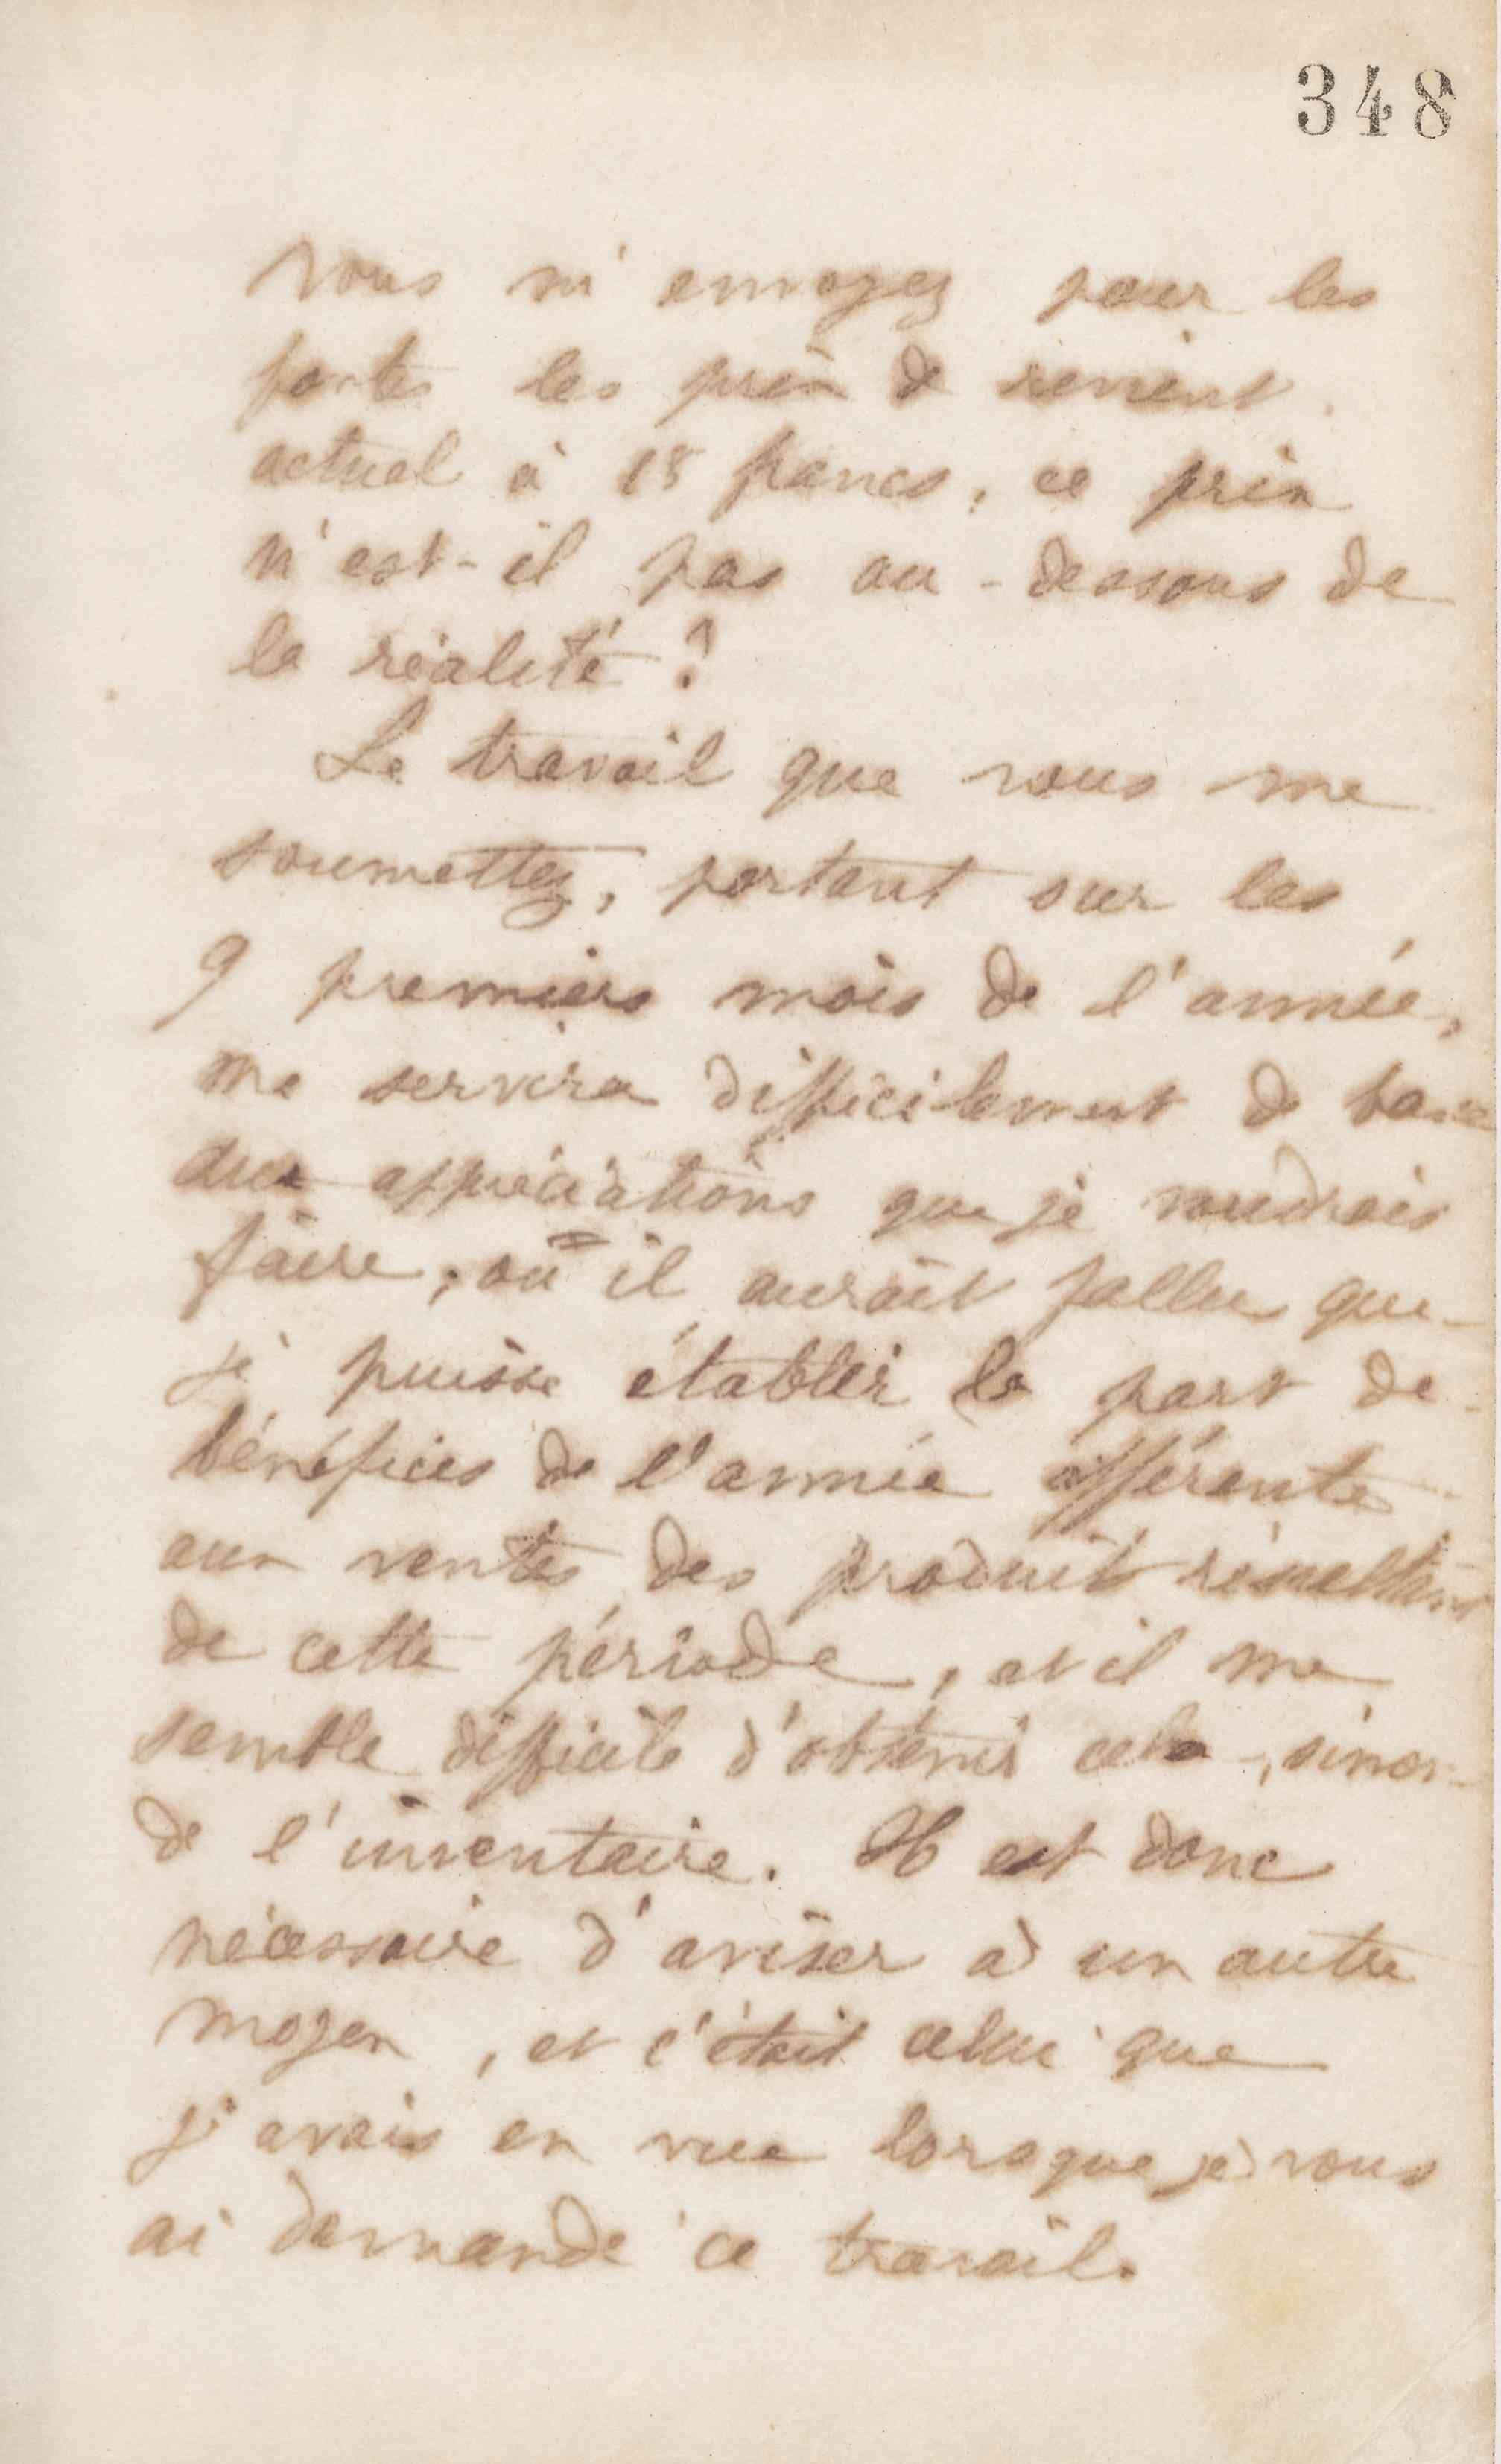 348
vous m'envoyez pour les
fontes les prix de revient
actuel à 18 francs, ce prix
n'est-il pas au-dessous de
la réalité?
Le travail que vous me
soumettez, portant sur les
9 premiers mois de l'année,
me servira difficilement de base
aux appréciations que je voudrais
faire; où il aurait fallu que
je puisse établir la part de
bénéfices de l'année afférente
aux ventes des produits résultant
de cette période, et il me
semble difficile d'obtenir cela, sinon
de l'inventaire. Il est donc
nécessaire d'aviser à un autre
moyen, et c'était celui que
j'avais en vue lorsque je vous
ai demandé ce travail.